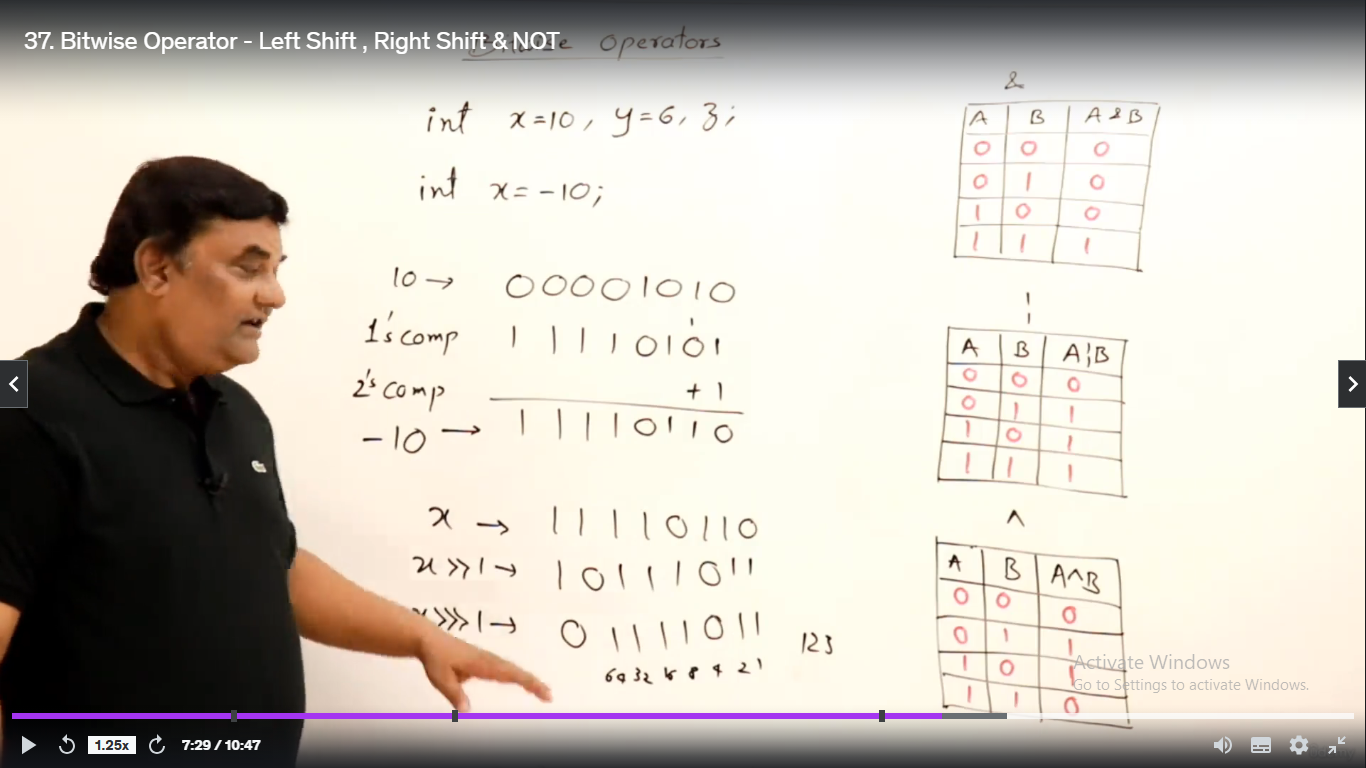 37. Bitwise Operator - Left Shift , Right Shift & NOT
Bitwise Operators
int x=10, y=6, z;
int x=-10;
10 → 00001010
1's comp 11110101
2's comp +1
-10 → 11110110
x → 11110110
x>>1→ 10111011
x>>>1→ 01111011 123
64 32 16 8 4 2 1
&
A B A&B
0 0 0
0 1 0
1 0 0
1 1 1
¦
A B A¦B
0 0 0
0 1 1
1 0 1
1 1 1
^
A B A^B
0 0 0
0 1 1
1 0 1
1 1 0
Activate Windows
Go to Settings to activate Windows.
1.25x 7:29 / 10:47